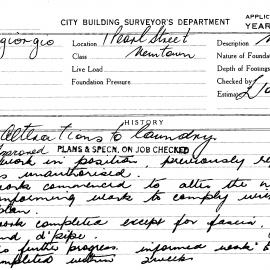 CITY BUILDING SURVEYOR'S DEPARTMENT APPLIC
giorgio Location 1 Pearl Street Description
Class Newtown Nature of Foundat
Live Load Depth of Footings
Foundation Pressure Checked by
Estimat
HISTORY
Alterations to laundry.
Approved PLANS & SPECN. ON JOB CHECKED
work in position previously
is unauthorised.
work commenced to alter the
conforming works to comply with
plan.
work completed except for fascia
d'pipe.
further progress. informed work
completed within 2 weeks